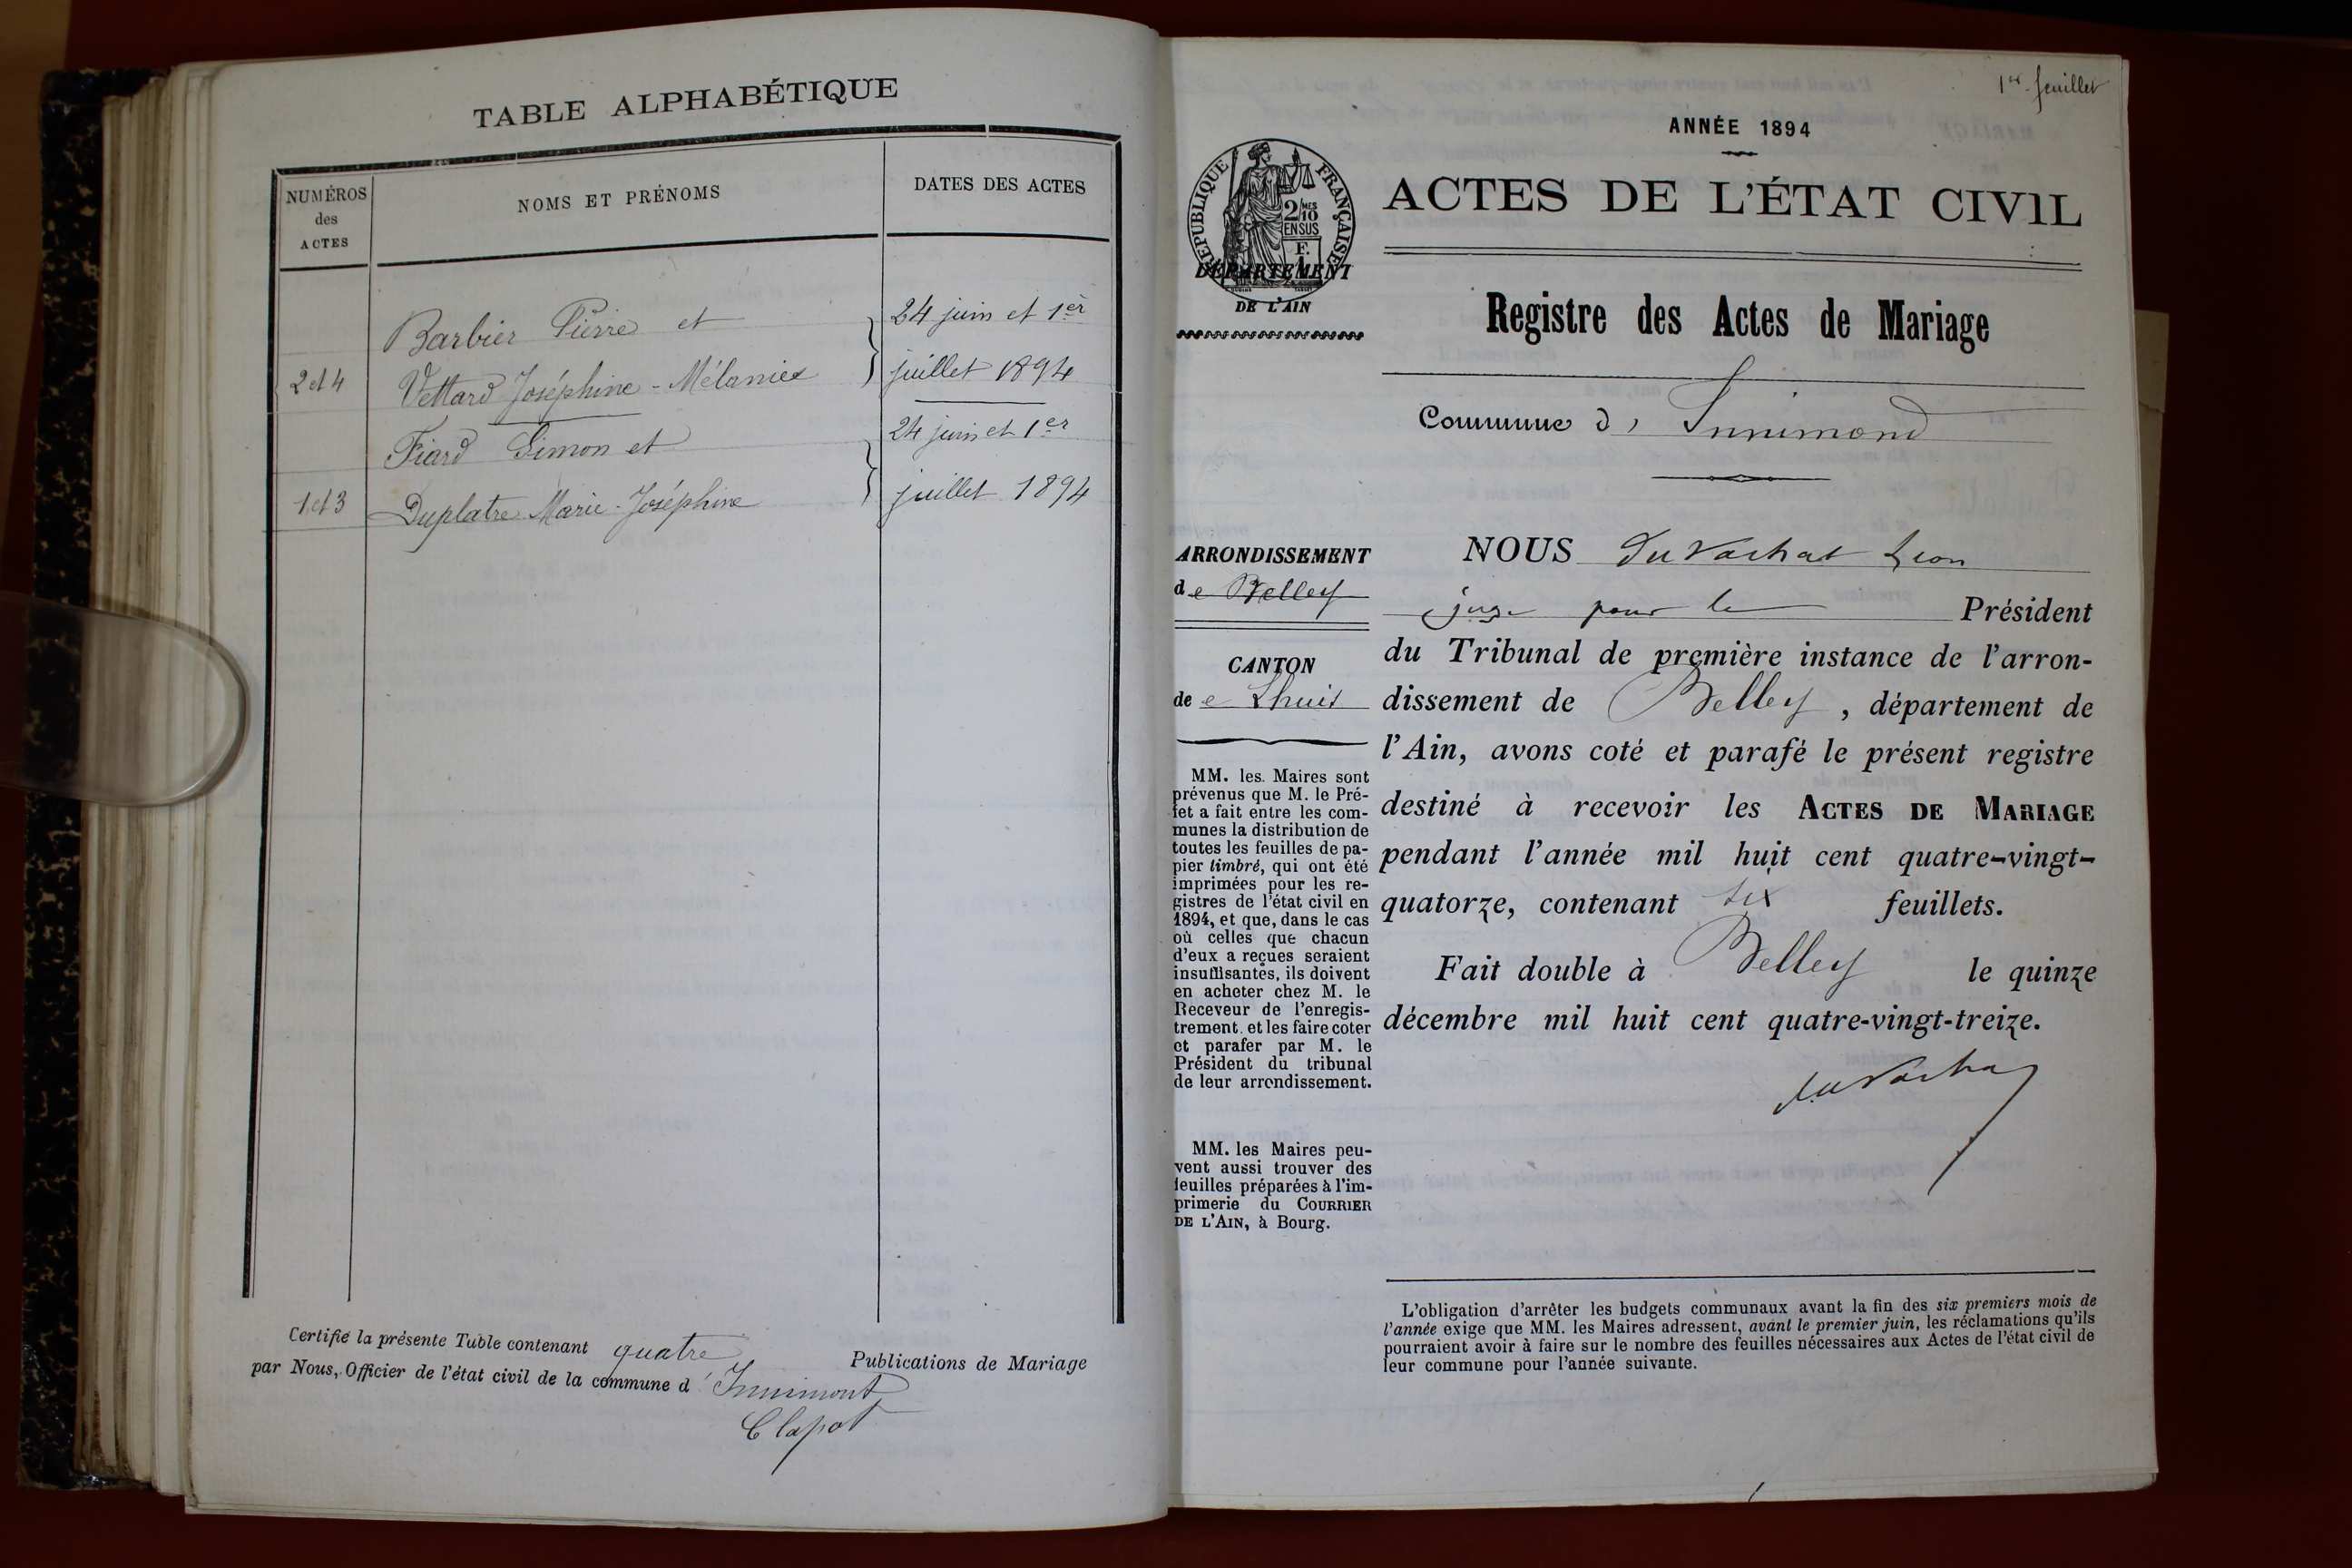 TABLE ALPHABÉTIQUE
NUMÉROS
des
ACTES
NOMS ET PRÉNOMS
DATES DES ACTES
Barbier Pierre et
24 juin et 1er
2 et 4
Vettard Joséphine-Mélanie
juillet 1894
Fiard Simon et
24 juin et 1er
1 et 3
Duplatre Marie-Joséphine
juillet 1894
Certifié la présente Table contenant quatre Publications de Mariage
par Nous, Officier de l'état civil de la commune d'Innimont
Clapot
1er feuillet
ANNÉE 1894
RÉPUBLIQUE FRANÇAISE
2/10 MES
EN SUS
F.
DÉPARTEMENT
DE L'AIN
ACTES DE L'ÉTAT CIVIL
Registre des Actes de Mariage
Commune d'Innimond
ARRONDISSEMENT
de Belley
CANTON
de e Lhuis
MM. les Maires sont
prévenus que M. le Pré-
fet a fait entre les com-
munes la distribution de
toutes les feuilles de pa-
pier timbré, qui ont été
imprimées pour les re-
gistres de l'état civil en
1894, et que, dans le cas
où celles que chacun
d'eux a reçues seraient
insuffisantes, ils doivent
en acheter chez M. le
Receveur de l'enregis-
trement et les faire coter
et parafer par M. le
Président du tribunal
de leur arrondissement.
MM. les Maires peu-
vent aussi trouver des
feuilles préparées à l'im-
primerie du COURRIER
DE L'AIN, à Bourg.
NOUS du Vachat Léon
juge pour le Président
du Tribunal de première instance de l'arron-
dissement de Belley, département de
l'Ain, avons coté et parafé le présent registre
destiné à recevoir les ACTES DE MARIAGE
pendant l'année mil huit cent quatre-vingt-
quatorze, contenant six feuillets.
Fait double à Belley le quinze
décembre mil huit cent quatre-vingt-treize.
du Vachat
L'obligation d'arrêter les budgets communaux avant la fin des six premiers mois de
l'année exige que MM. les Maires adressent, avant le premier juin, les réclamations qu'ils
pourraient avoir à faire sur le nombre des feuilles nécessaires aux Actes de l'état civil de
leur commune pour l'année suivante.